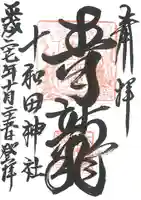 奉拝
青龍
十和田神社
平成二十七年十月二十五日登拝